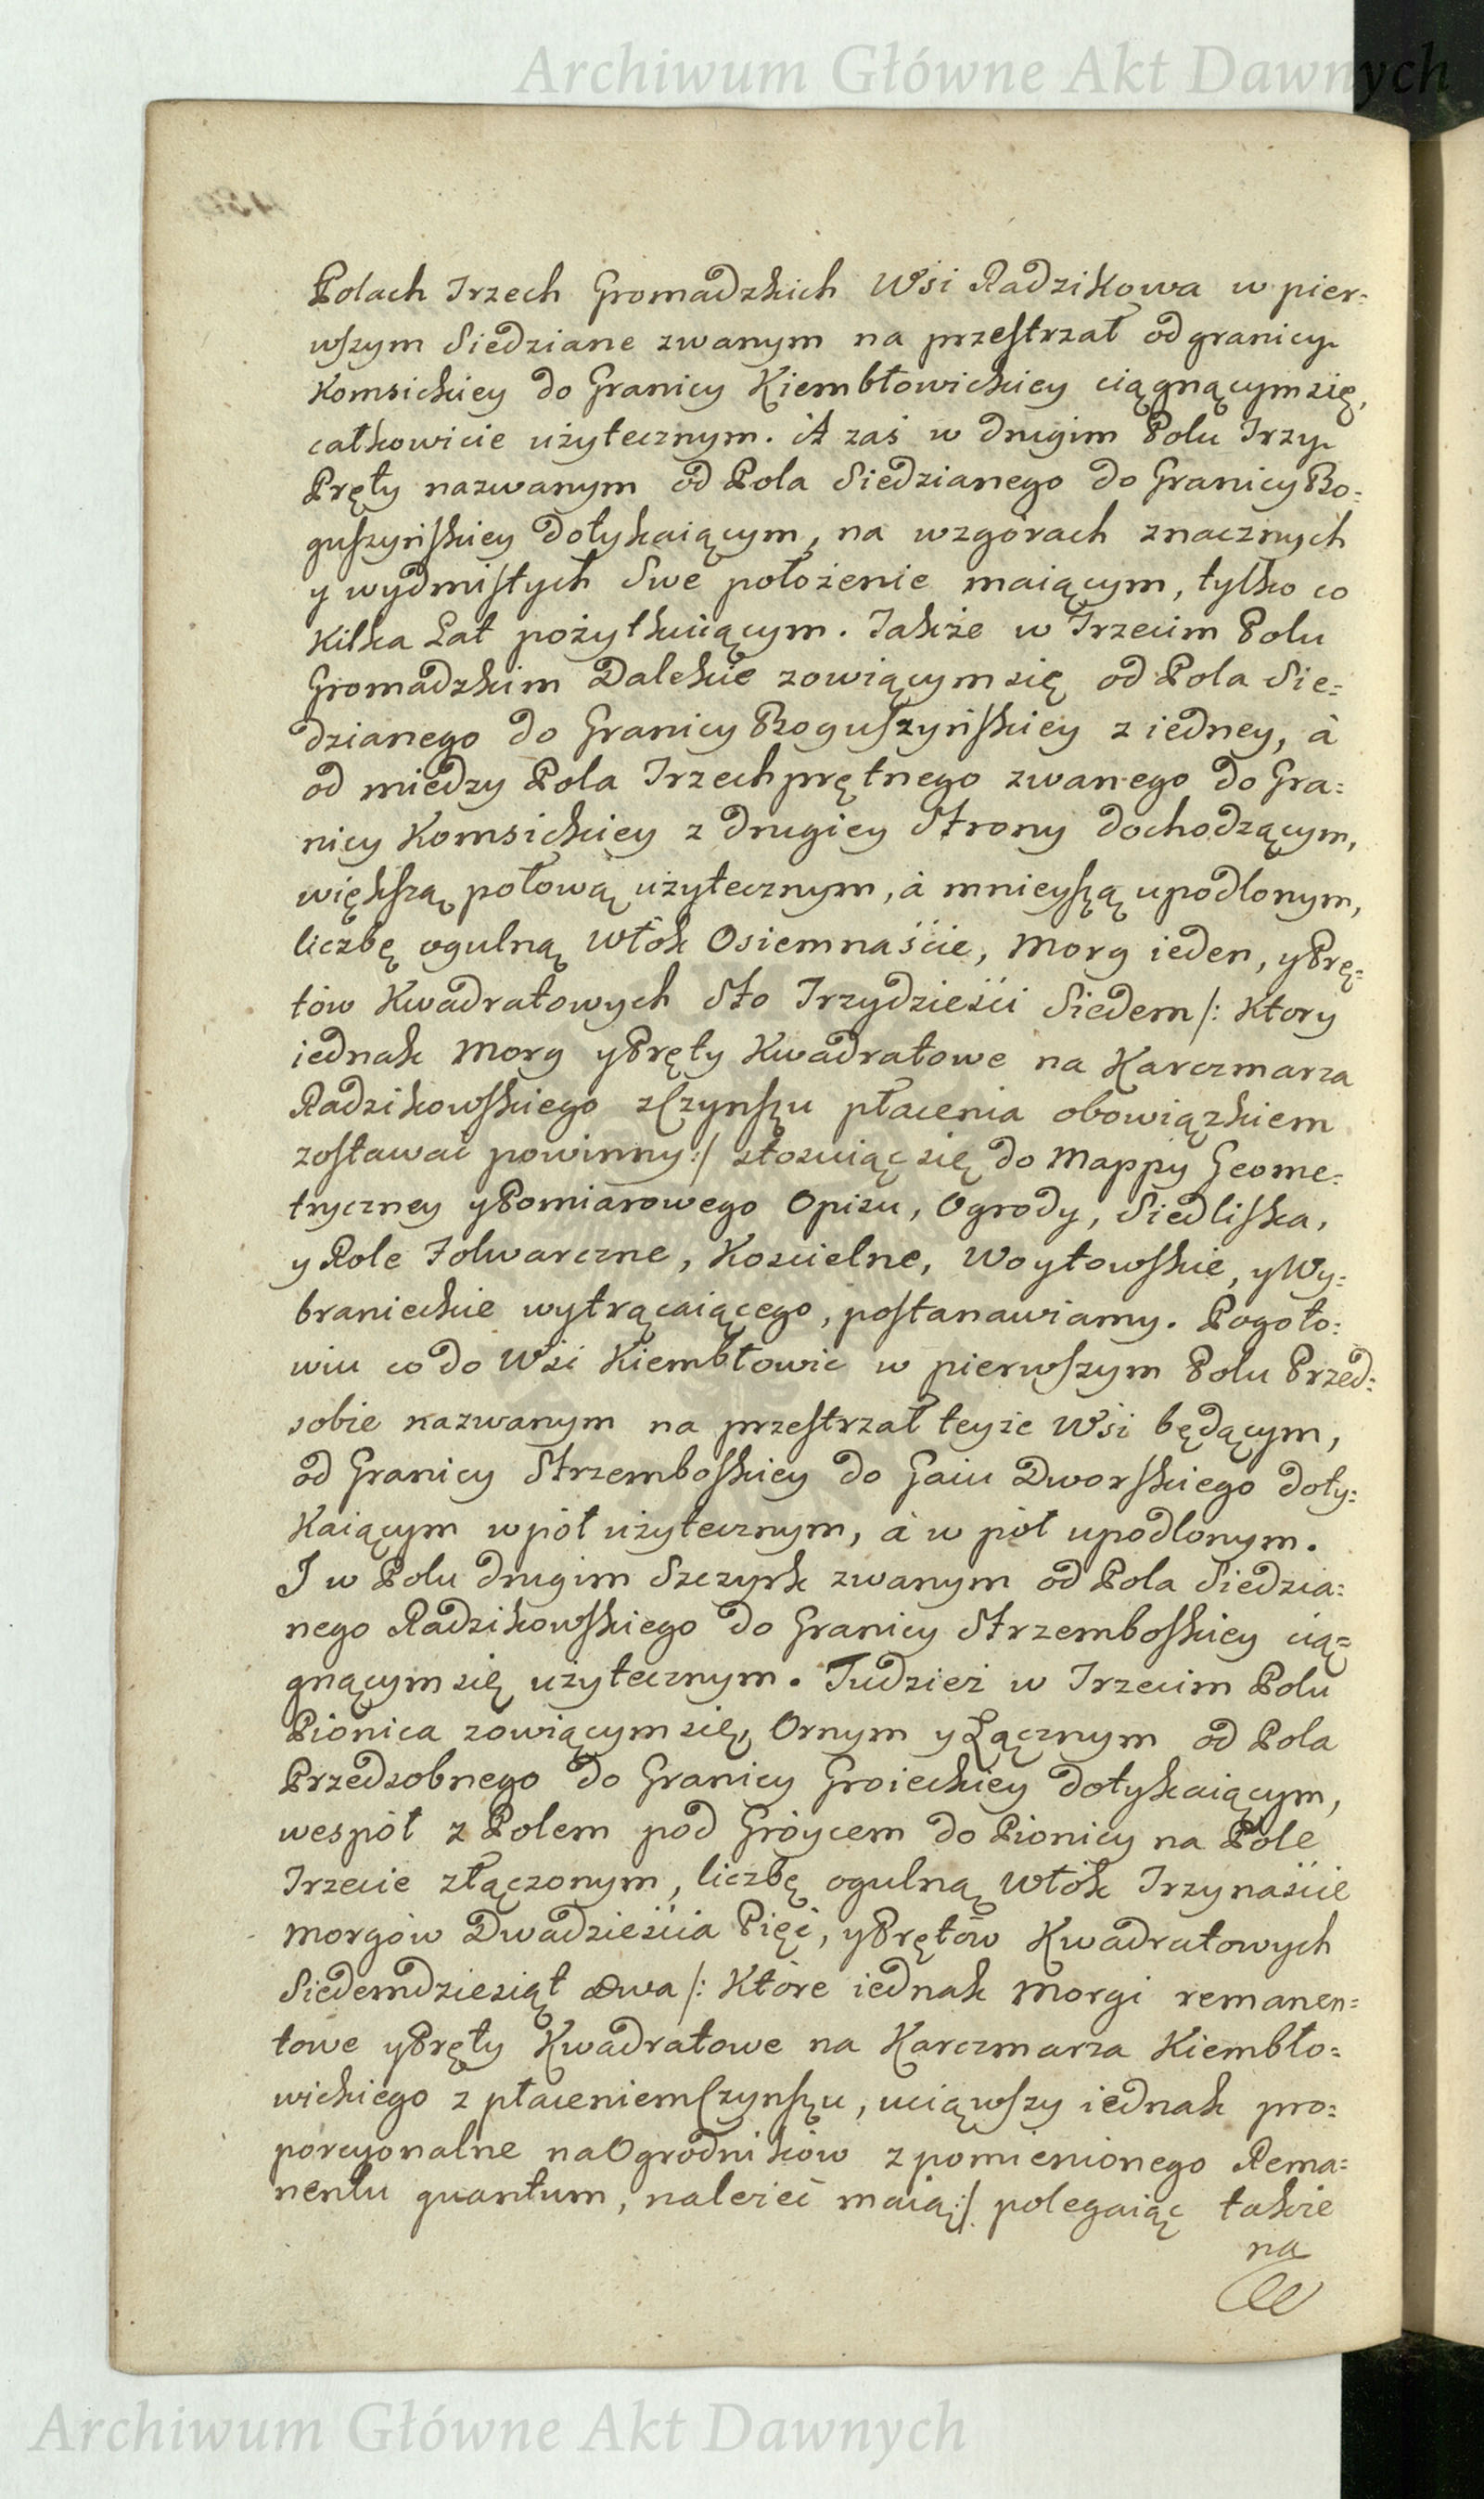 Archiwum Główne Akt Dawnych
Polach Trzech Gromadzkich Wsi Radzikowa w pier=
wszym Siedziane zwanym na przestrzał od granicy
Komsickiey do Granicy Kiembłowickiey ciągnącym się,
całkowicie użytecznym. A zaś w drugim Polu Trzy
Pręty nazwanym od Pola Siedzianego do Granicy Bo=
guszyńskiey dotykaiącym, na wzgórach znacznych
y wydmistych Swe położenie maiącym, tylko co
Kilka Lat pożytkuiącym. Także w Trzecim Polu
Gromadzkim Dalekie zowiącym się od Pola Sie=
dzianego do Granicy Boguszyńskiey z iedney, à
od miedzy Pola Trzechprętnego zwanego do Gra=
nicy Komsickiey z drugiey Strony dochodzącym,
większą połową użytecznym, à mnieyszą upodlonym,
liczbę ogulną Włók Osiemnaście, Morg ieden, y Prę=
tów Kwadratowych Sto Trzydzieści Siedem /: Który
iednak Morg y Pręty Kwadratowe na Karczmarza
Radzikowskiego z Czynszu płacenia obowiązkiem
zostawać powinny :/ stosuiąc się do Mappy Geome=
tryczney y Pomiarowego Opisu, Ogrody, Siedliska,
y Role Folwarczne, Kościelne, Woytowskie, y Wy=
branieckie wytrącaiącego, postanawiamy. Pogoto=
wiu co do Wsi Kiembłowic w pierwszym Polu Przed=
sobie nazwanym na przestrzał teyże Wsi będącym,
od Granicy Strzemboskiey do Gaiu Dworskiego doty=
Kaiącym w pół użytecznym, à w pół upodlonym.
I w Polu drugim Szczyrk zwanym od Pola Siedzia=
nego Radzikowskiego do Granicy Strzemboskiey cią=
gnącym się użytecznym. Tudzież w Trzecim Polu
Pionica zowiącym się, Ornym y Łącznym od Pola
Przedsobnego do Granicy Groieckiey dotykaiącym,
wespół z Polem pod Gróycem do Pionicy na Pole
Trzecie złączonym, liczbę ogulną Włók Trzynaście
Morgów Dwadzieścia Pięć, y Prętów Kwadratowych
Siedemdziesiąt Dwa /: Które iednak Morgi remanen=
towe y Pręty Kwadratowe na Karczmarza Kiembło=
wickiego z płaceniem Czynszu, uciąwszy iednak pro=
porcyonalne na Ogrodników z pomienionego Rema=
nentu quantum, należeć maią :/ polegaiąc także
na
Archiwum Główne Akt Dawnych